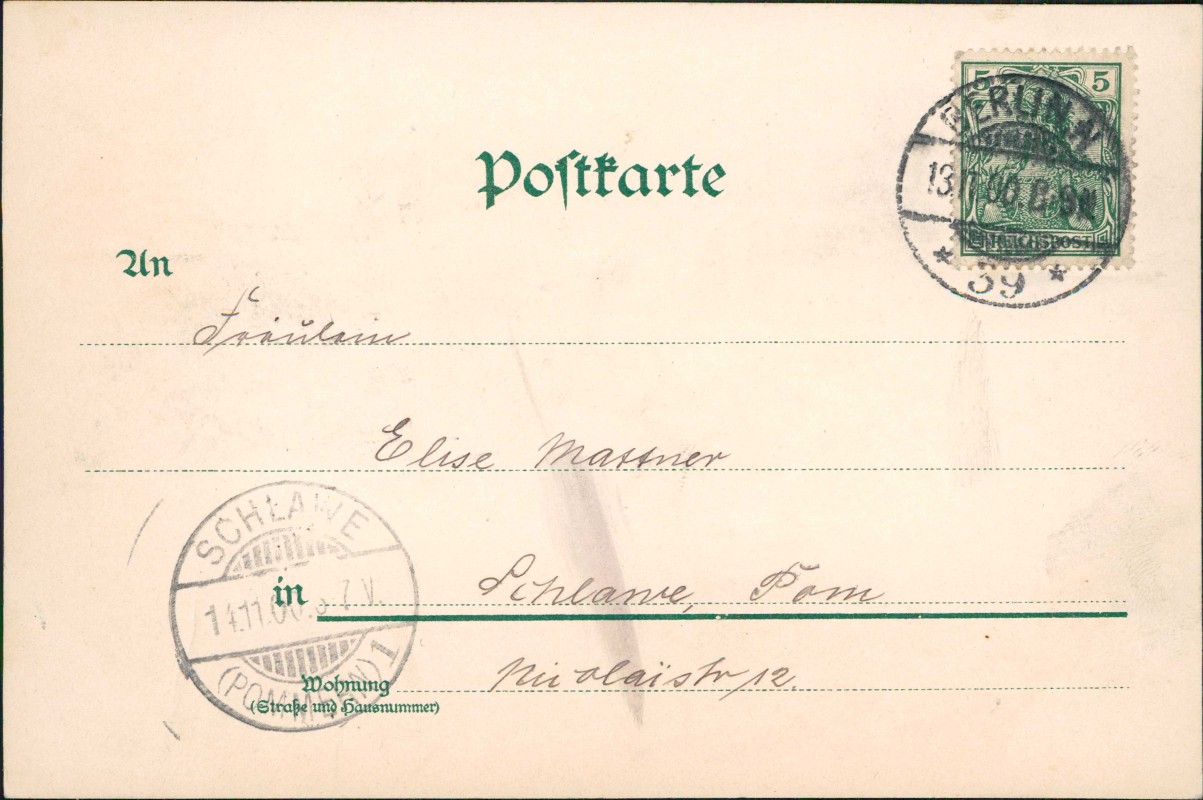 5 5
REICHSPOST
BERLIN N
13.11.00. 8-9N
* 39 *
Postkarte
An
Fräulein
Elise Massner
SCHLAWE
14.11.00. 7 V.
(POMMERN) 1
in Schlawe, Pom
Nicolaistr 12.
Wohnung
(Straße und Hausnummer)